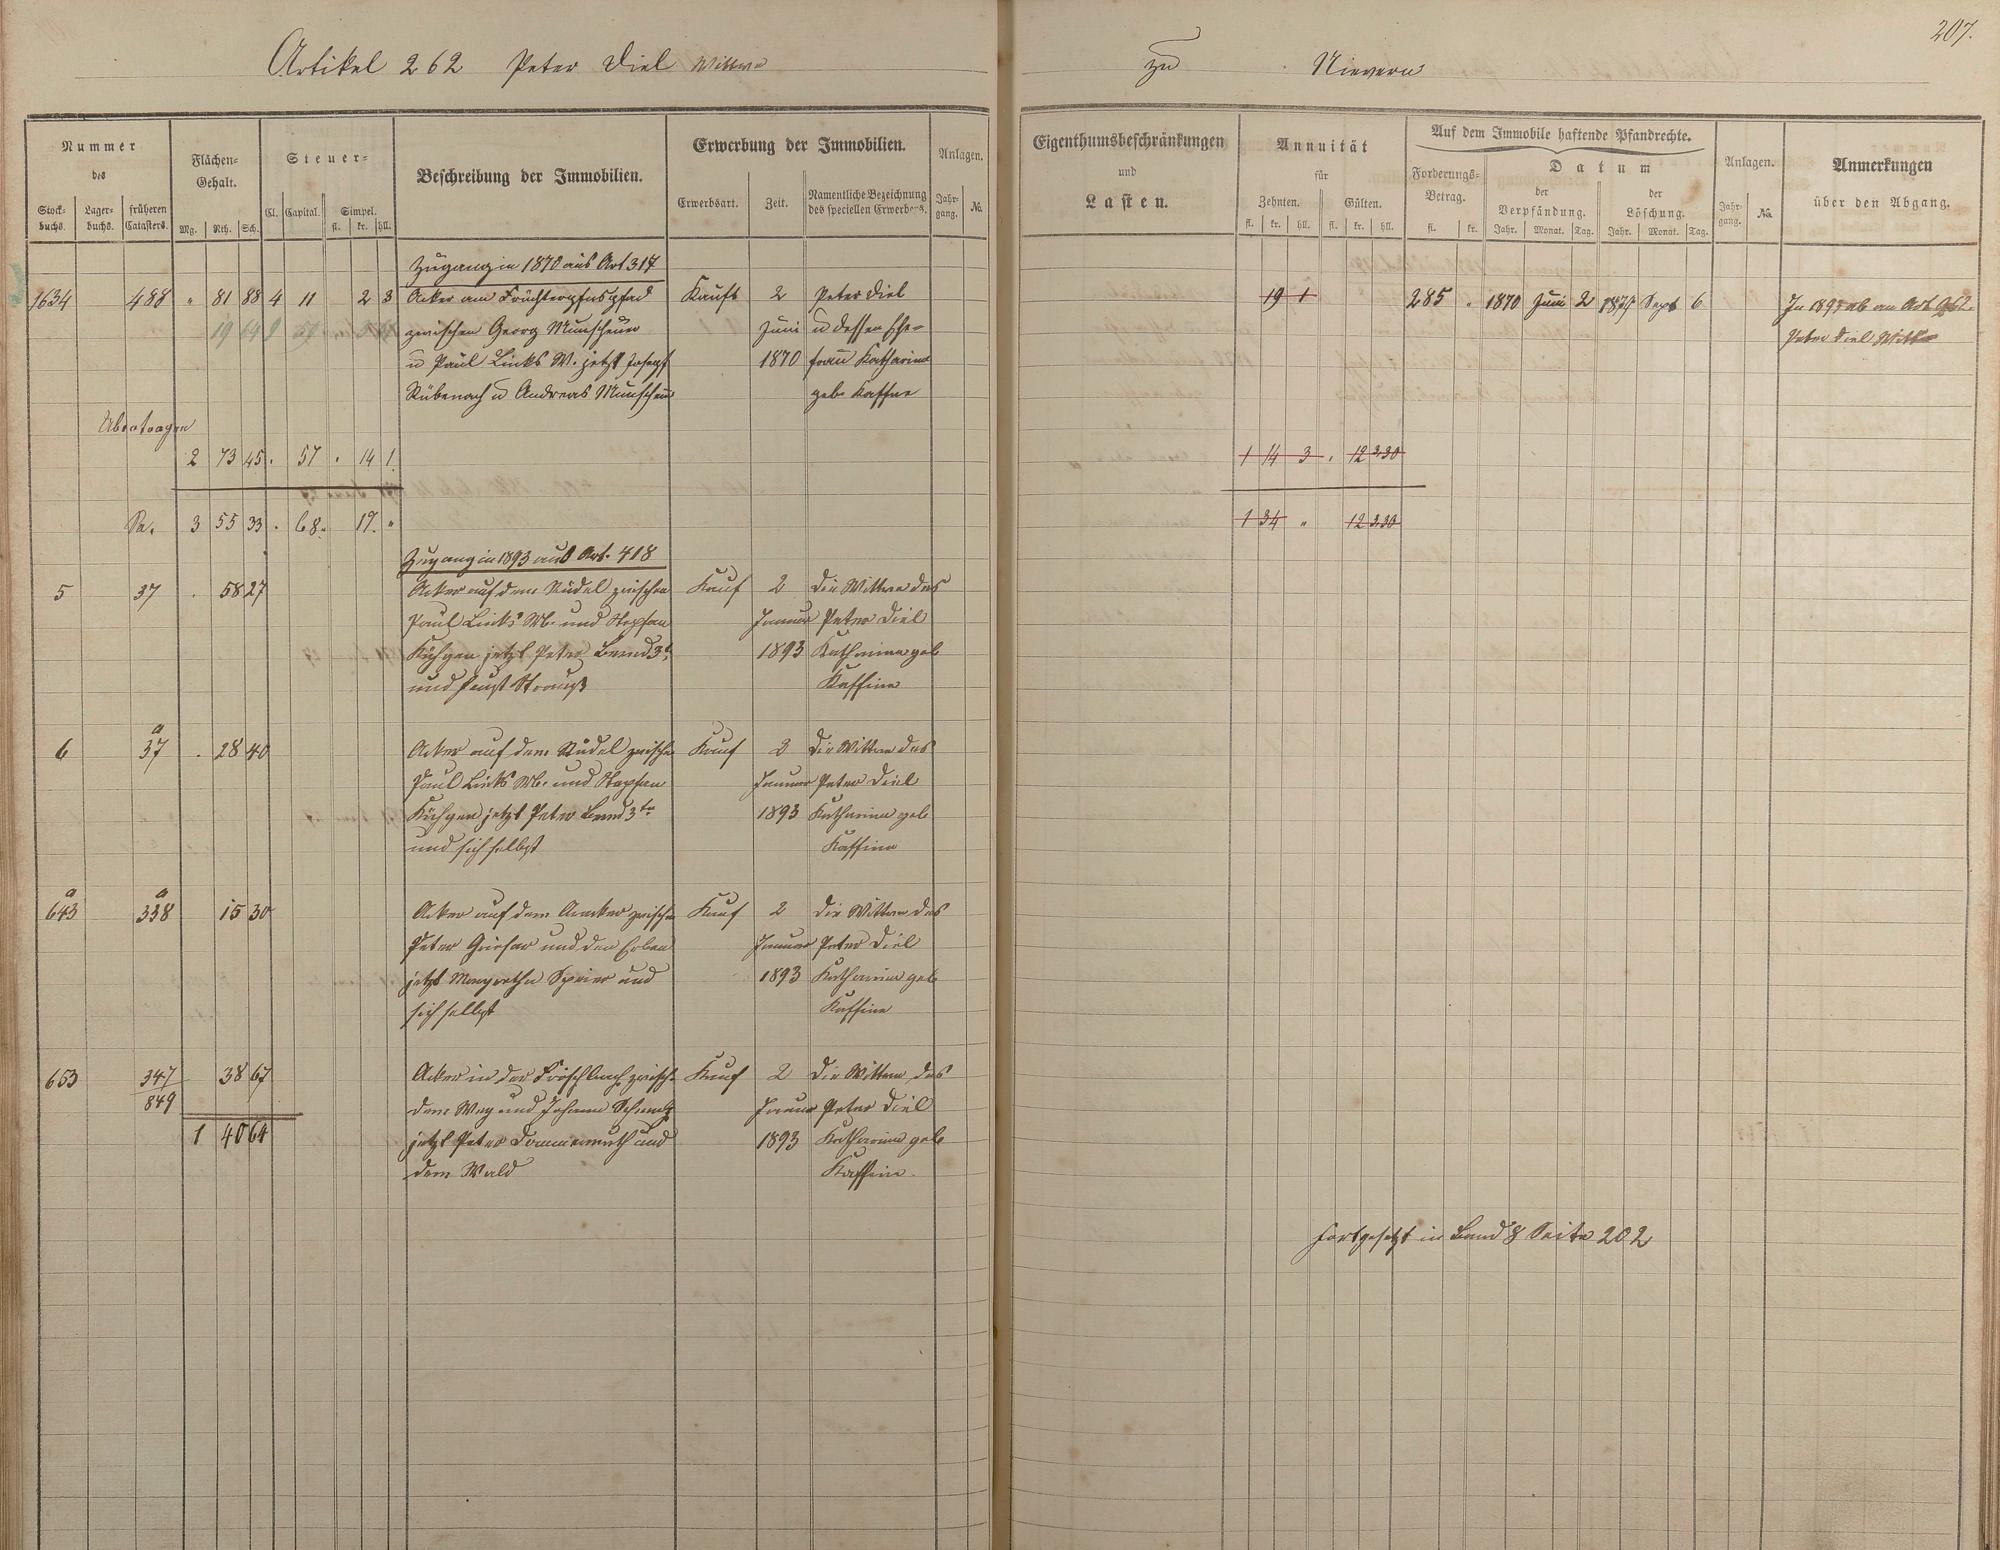 207.
Artikel 262 Peter Diel Wittwe
zu Nievern
Nummer
des
Stock-
buchs.
Lager-
buchs.
früheren
Catasters.
Flächen-
Gehalt.
Mg. Rth. Sch.
Steuer-
Cl. Capital. Simpel.
fl. kr. hll.
Beschreibung der Immobilien.
Erwerbung der Immobilien.
Erwerbsart. Zeit. Namentliche Bezeichnung
des speciellen Erwerbers.
Anlagen.
Jahr-
gang. No.
Eigenthumsbeschränkungen
und
Lasten.
Annuität
für
Zehnten. Gülten.
fl. kr. hll. fl. kr. hll.
Auf dem Immobile haftende Pfandrechte.
Forderungs-
Betrag.
fl. kr.
Datum
der
Verpfändung.
Jahr. Monat. Tag.
der
Löschung.
Jahr. Monat. Tag.
Anlagen.
Jahr-
gang. No.
Anmerkungen
über den Abgang.
Zugang in 1870 aus Art 317
1634 488 " 81 88 4 11 2 3 Acker am Früchterpfuspfad Kauft 2 Peter Diel 19 1 285 " 1870 Juni 2 1874 Sept 6 In 1893 ab an Art
19 64 zwischen Georg Munscheuer Juni u dessen Ehe- Peter Diel Wittwe
u Paul Links W. jetzt Joseph 1870 frau Katharina
Rübenach u Andreas Munscheuer geb. Kaffine
Übertragen
2 73 45 . 57 . 14 1. 1 14 3 . 12 3.30
Sa. 3 55 33 . 68. 17. " 1 34 " 12 3.30
Zugang in 1893 aus Art. 418
5 37 . 58 27 Acker auf dem Rüdel zwischen Kauf 2 Die Wittwe des
Paul Links Wb. und Stephan Januar Peter Diel
jetzt Peter Bernd 3t. 1893 Katharina geb
und Strauß Kaffine
6 37 a . 28 40 Acker auf dem Rüdel zwischen Kauf 2 Die Wittwe des
Paul Links Wb. und Stephan Januar Peter Diel
jetzt Peter Bernd 3te 1893 Katharina geb
und sich selbst Kaffine
643 a 338 a 15 30 Acker auf dem zwischen Kauf 2 Die Wittwe des
Peter und den Erben Januar Peter Diel
jetzt Margretha Speier und 1893 Katharina geb
sich selbst Kaffine
653 347/849 38 67 Acker in der Fröschbach zwischen Kauf 2 Die Wittwe des
dem Weg und Johann Schmitz Januar Peter Diel
1 40 64 jetzt Peter Dommermuth und 1893 Katharina geb
dem Wald Kaffine.
Fortgesetzt in Band 8 Seite 202